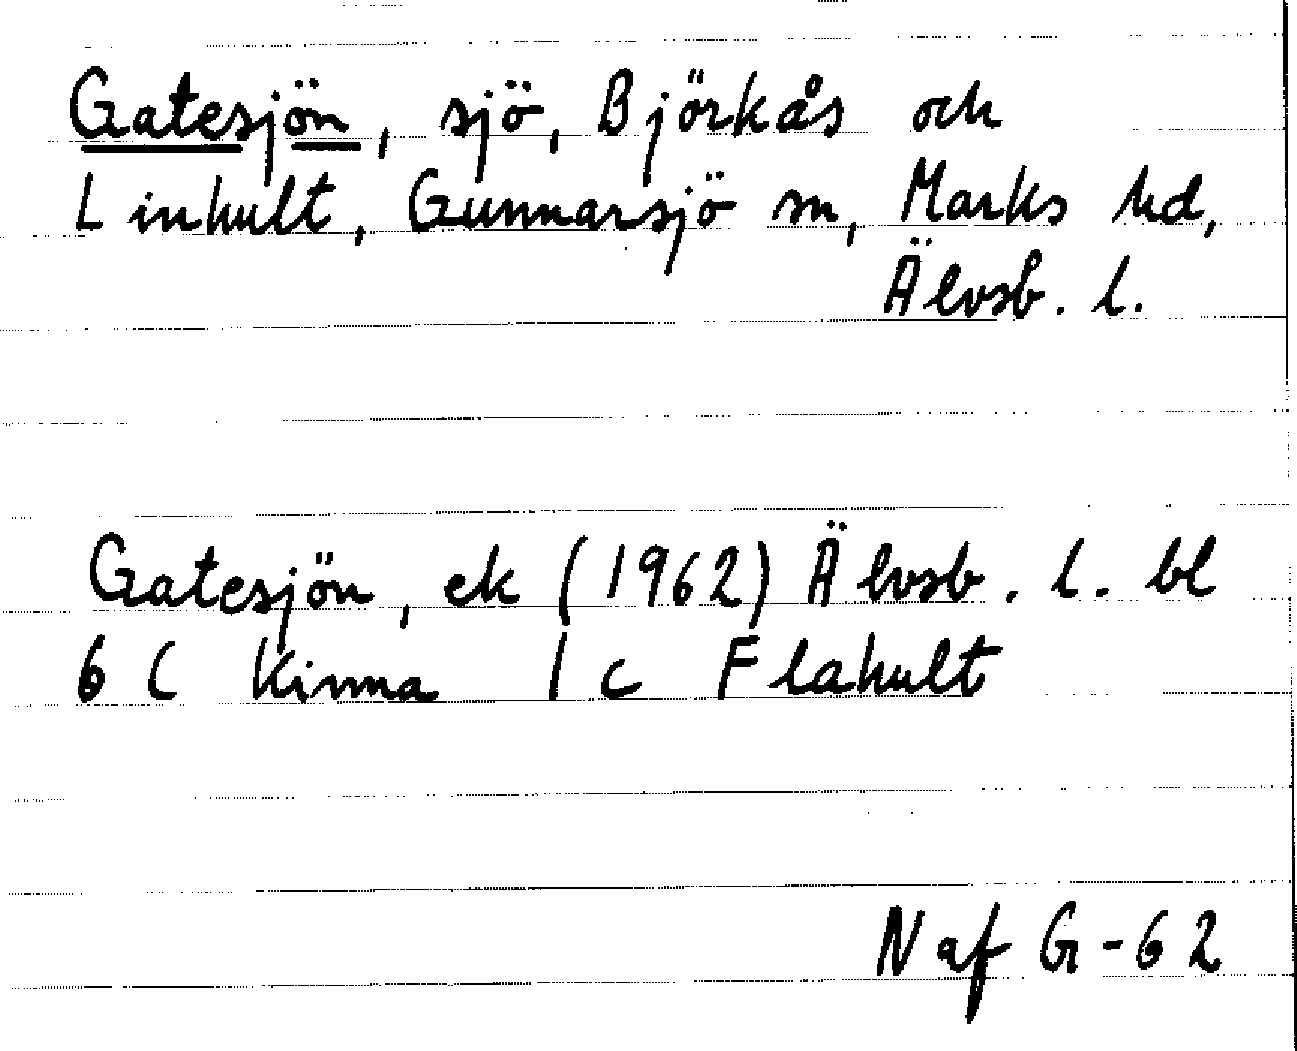 Gatesjön, sjö, Björkås och
Linhult, Gunnarsjö sn, Marks hd,
Älvsb. l.
Gatesjön, ek (1962) Älvsb. l. bl
6 C Kinna 1 c Flahult
Naf G-62